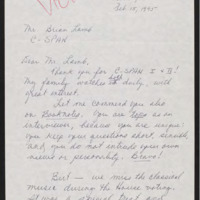 Feb. 15, 1995
Mr. Brian Lamb
C-SPAN
Dear Mr. Lamb,
Thank you for C-SPAN I & II!
My family watches both daily, with
great interest.
Let me commend you also
on Booknotes. You are tops as an
interviewer, because you are unique:
You keep your questions short, succinct,
and you do not intrude your own
needs or personality. Bravo!
But — we miss the classical
music during the House voting.
It was a special treat and